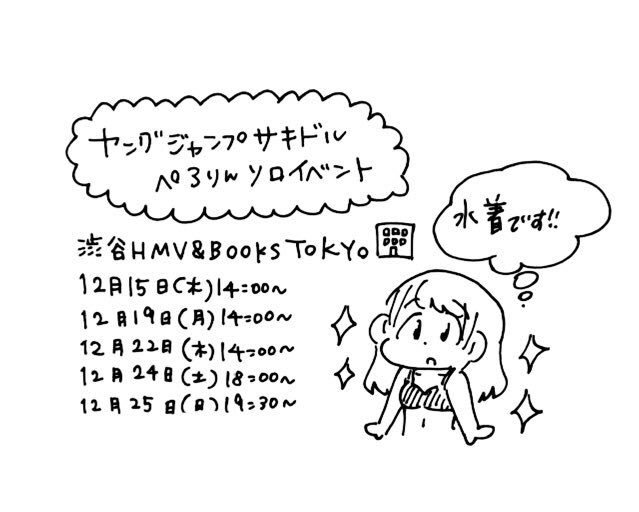 ヤングジャンプサキドル
ぺろりんソロイベント
渋谷HMV&BOOKS TOKYO
12月15日(木)14:00〜
12月19日(月)14:00〜
12月22日(木)14:00〜
12月24日(土)18:00〜
12月25日(日)19:30〜
水着です!!